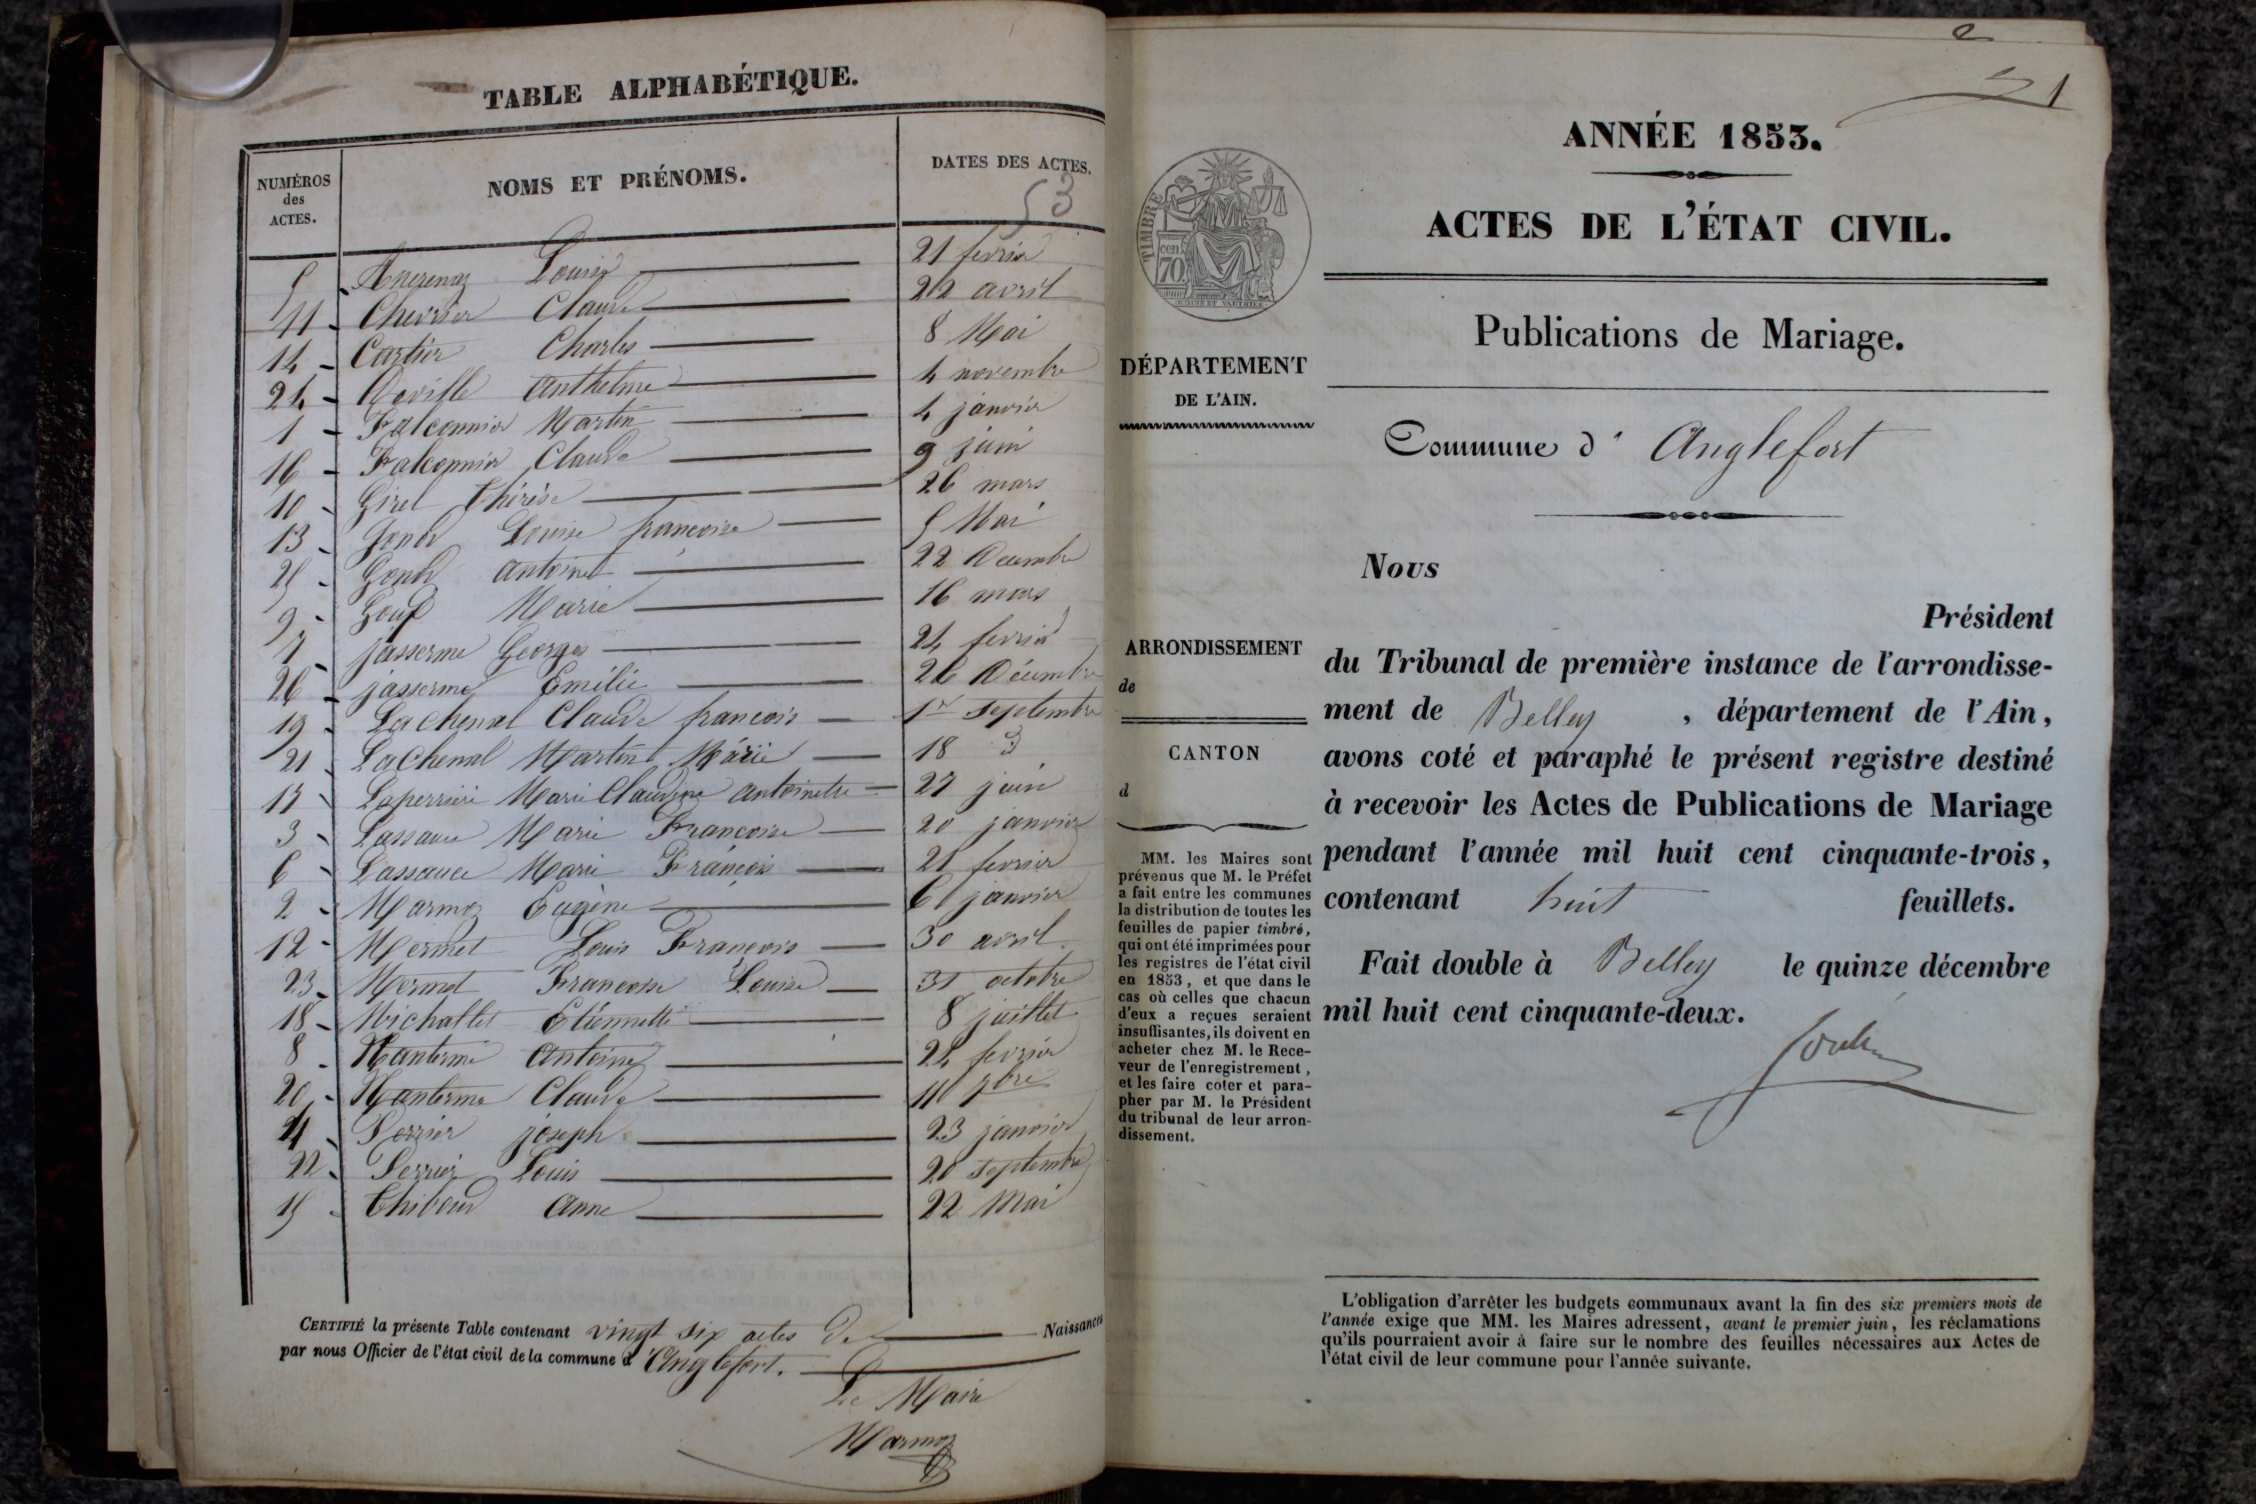 TABLE ALPHABÉTIQUE.
NUMÉROS
des
ACTES.
NOMS ET PRÉNOMS.
DATES DES ACTES.
53
5 Louise 21 fevrier
11 Chevrier Claude 22 avril
14 Cartier Charles 8 Mai
24 Deville Anthelme 4 novembre
1 Falconnier Martin 4 janvier
16 Falconnier Claude 9 juin
10 Girel Thérèse 26 mars
13 Gonod Louise françoise 5 Mai
25 Gonod antoine 22 Decembre
9 Marie 16 mars
7 jasserme Georges 24 fevrier
26 jasserme Emilie 26 Décembre
19 Lachenal Claude francois 1er Septembre
21 Lachenal Martin Marie 18 d
17 Laperriere Marie Claudine antoinette 27 juin
3 Lassauce Marie Francoise 20 janvier
6 Lassauce Marie François 21 fevrier
2 Marmoz Eugène 6 janvier
12 Mermet Louis François 30 avril
23 Mermet Francoise Louise 31 octobre
18 Michallet Etiennette 8 juillet
8 Nanterme Antoine 24 fevrier
20 Nanterme Claude 11 7bre
4 Perrier joseph 23 janvier
22 Perrier Louis 20 Septembre
15 Thiboud Anne 22 Mai
CERTIFIÉ la présente Table contenant vingt six actes de Naissances
par nous Officier de l'état civil de la commune d'Anglefort.
Le Maire
Marmoz
2
1
ANNÉE 1853.
ACTES DE L'ÉTAT CIVIL.
TIMBRE
cen
70
Publications de Mariage.
DÉPARTEMENT
DE L'AIN.
Commune d' Anglefort
Nous
Président
ARRONDISSEMENT
de
CANTON
d
du Tribunal de première instance de l'arrondisse-
ment de Belley, département de l'Ain,
avons coté et paraphé le présent registre destiné
à recevoir les Actes de Publications de Mariage
pendant l'année mil huit cent cinquante-trois,
contenant huit feuillets.
Fait double à Belley le quinze décembre
mil huit cent cinquante-deux.
MM. les Maires sont
prévenus que M. le Préfet
a fait entre les communes
la distribution de toutes les
feuilles de papier timbré,
qui ont été imprimées pour
les registres de l'état civil
en 1853, et que dans le
cas où celles que chacun
d'eux a reçues seraient
insuffisantes, ils doivent en
acheter chez M. le Rece-
veur de l'enregistrement,
et les faire coter et para-
pher par M. le Président
du tribunal de leur arron-
dissement.
L'obligation d'arrêter les budgets communaux avant la fin des six premiers mois de
l'année exige que MM. les Maires adressent, avant le premier juin, les réclamations
qu'ils pourraient avoir à faire sur le nombre des feuilles nécessaires aux Actes de
l'état civil de leur commune pour l'année suivante.